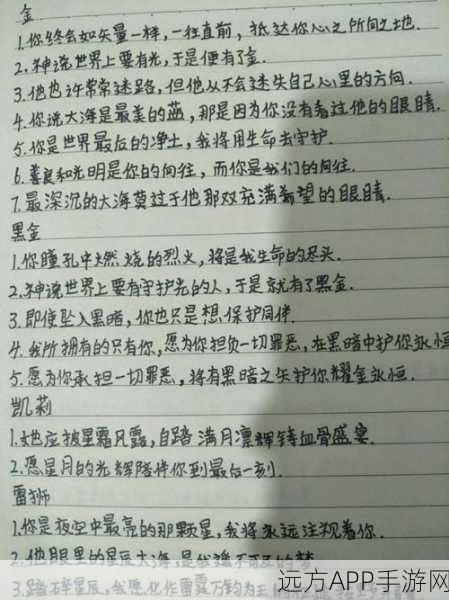 金
1.你终会如矢量一样,一往直前,抵达你心之所向之地.
2.神说世界上要有光,于是便有了金.
3.他也许常常迷路,但他从不会迷失自己心里的方向.
4.你说大海是最美的蓝,那是因为你没有看过他的眼睛.
5.你是世界最后的净土,我将用生命去守护.
6.善良和光明是你的向往,而你是我们的向往.
7.最深沉的大海莫过于他那双充满希望的眼睛.
黑金
1.你瞳孔中燃烧的烈火,将是我生命的尽头.
2.神说世界上要有守护光的人,于是就有了黑金.
3.即使坠入黑暗,你也只是想保护同伴.
4.我所拥有的只有你,愿为你担负一切罪恶,在黑暗中护你永恒
5.愿为你承担一切罪恶,将有黑暗之矢护你耀金永恒.
凯莉
1.她应披星霜风露,自踏满月凛辉铸血骨盛宴.
2.愿星月的光辉陪伴你到最后一刻.
雷狮
1.你是夜空中最亮的那颗星,我将永远注视着你.
2.他眼里的星辰大海,是我遥不可及的梦
3.踏碎星辰,我愿化作雷霆万钧为王
远方APP手游网